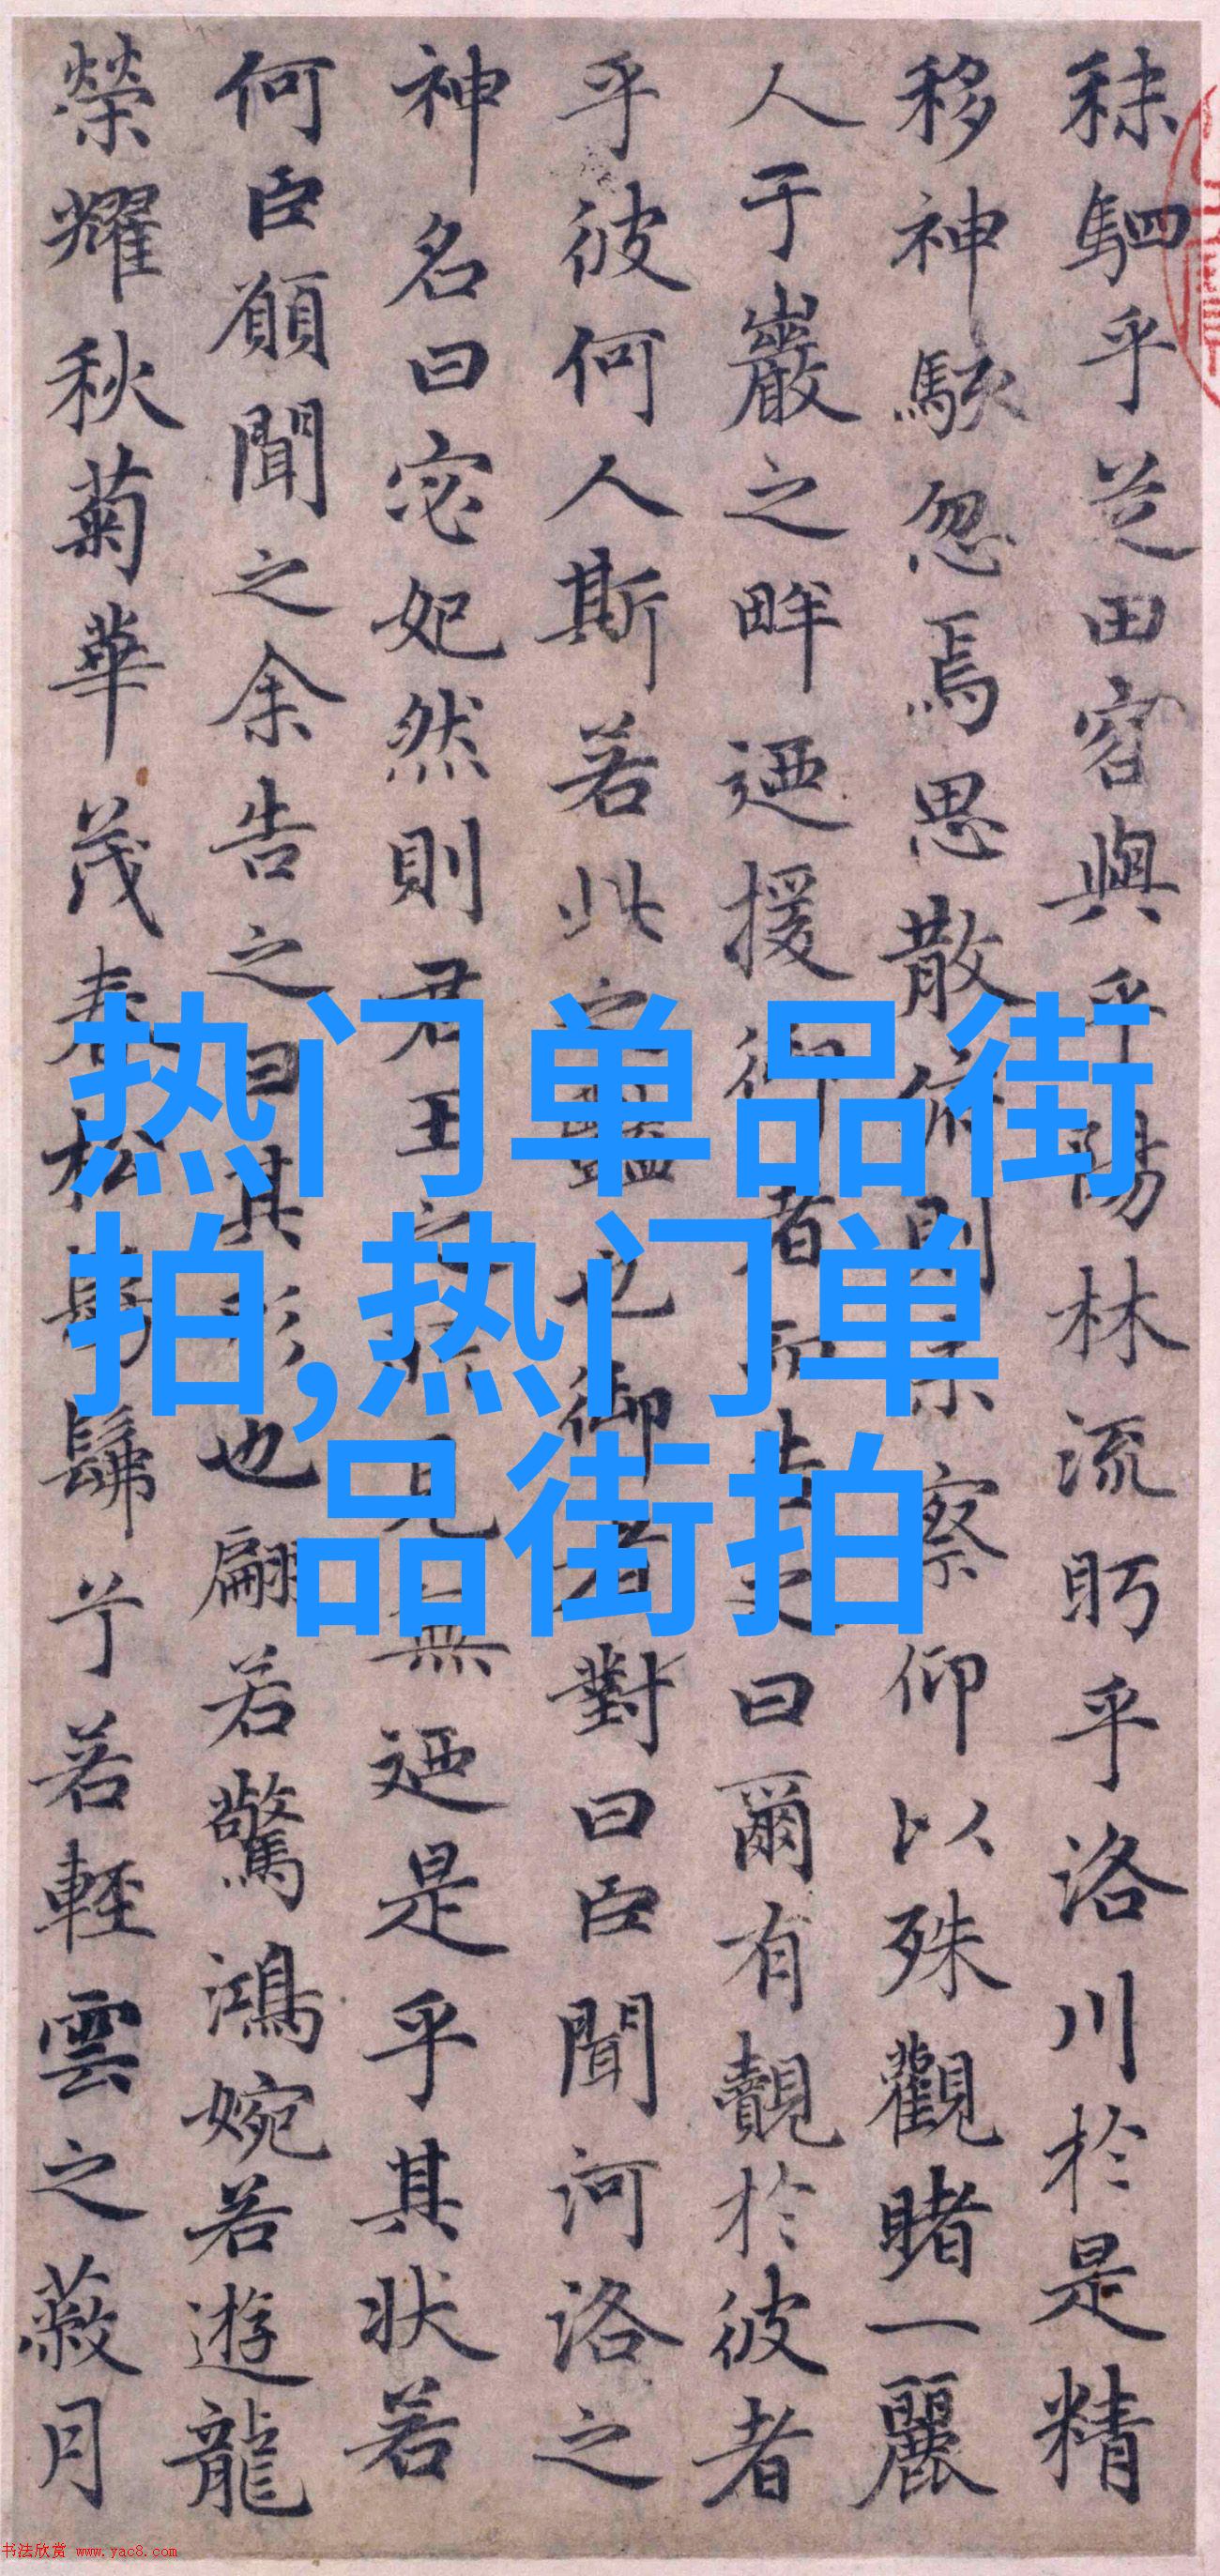 秣駟乎芝田容與乎陽林流眄乎洛川於是精
移神駭忽焉思散俯則未察仰以殊觀睹一麗
人于巖之畔迺援御者而告之曰爾有覿於彼者
乎彼何人斯若此豔也御者對曰臣聞河洛之
神名曰宓妃然則君王之所見無迺是乎其狀若
何臣願聞之余告之曰其形也翩若驚鴻婉若遊龍
榮耀秋菊華茂春松髣髴兮若輕雲之蔽月
热门单品街
拍,热门单
品街拍
书法欣赏 www.yac8.com